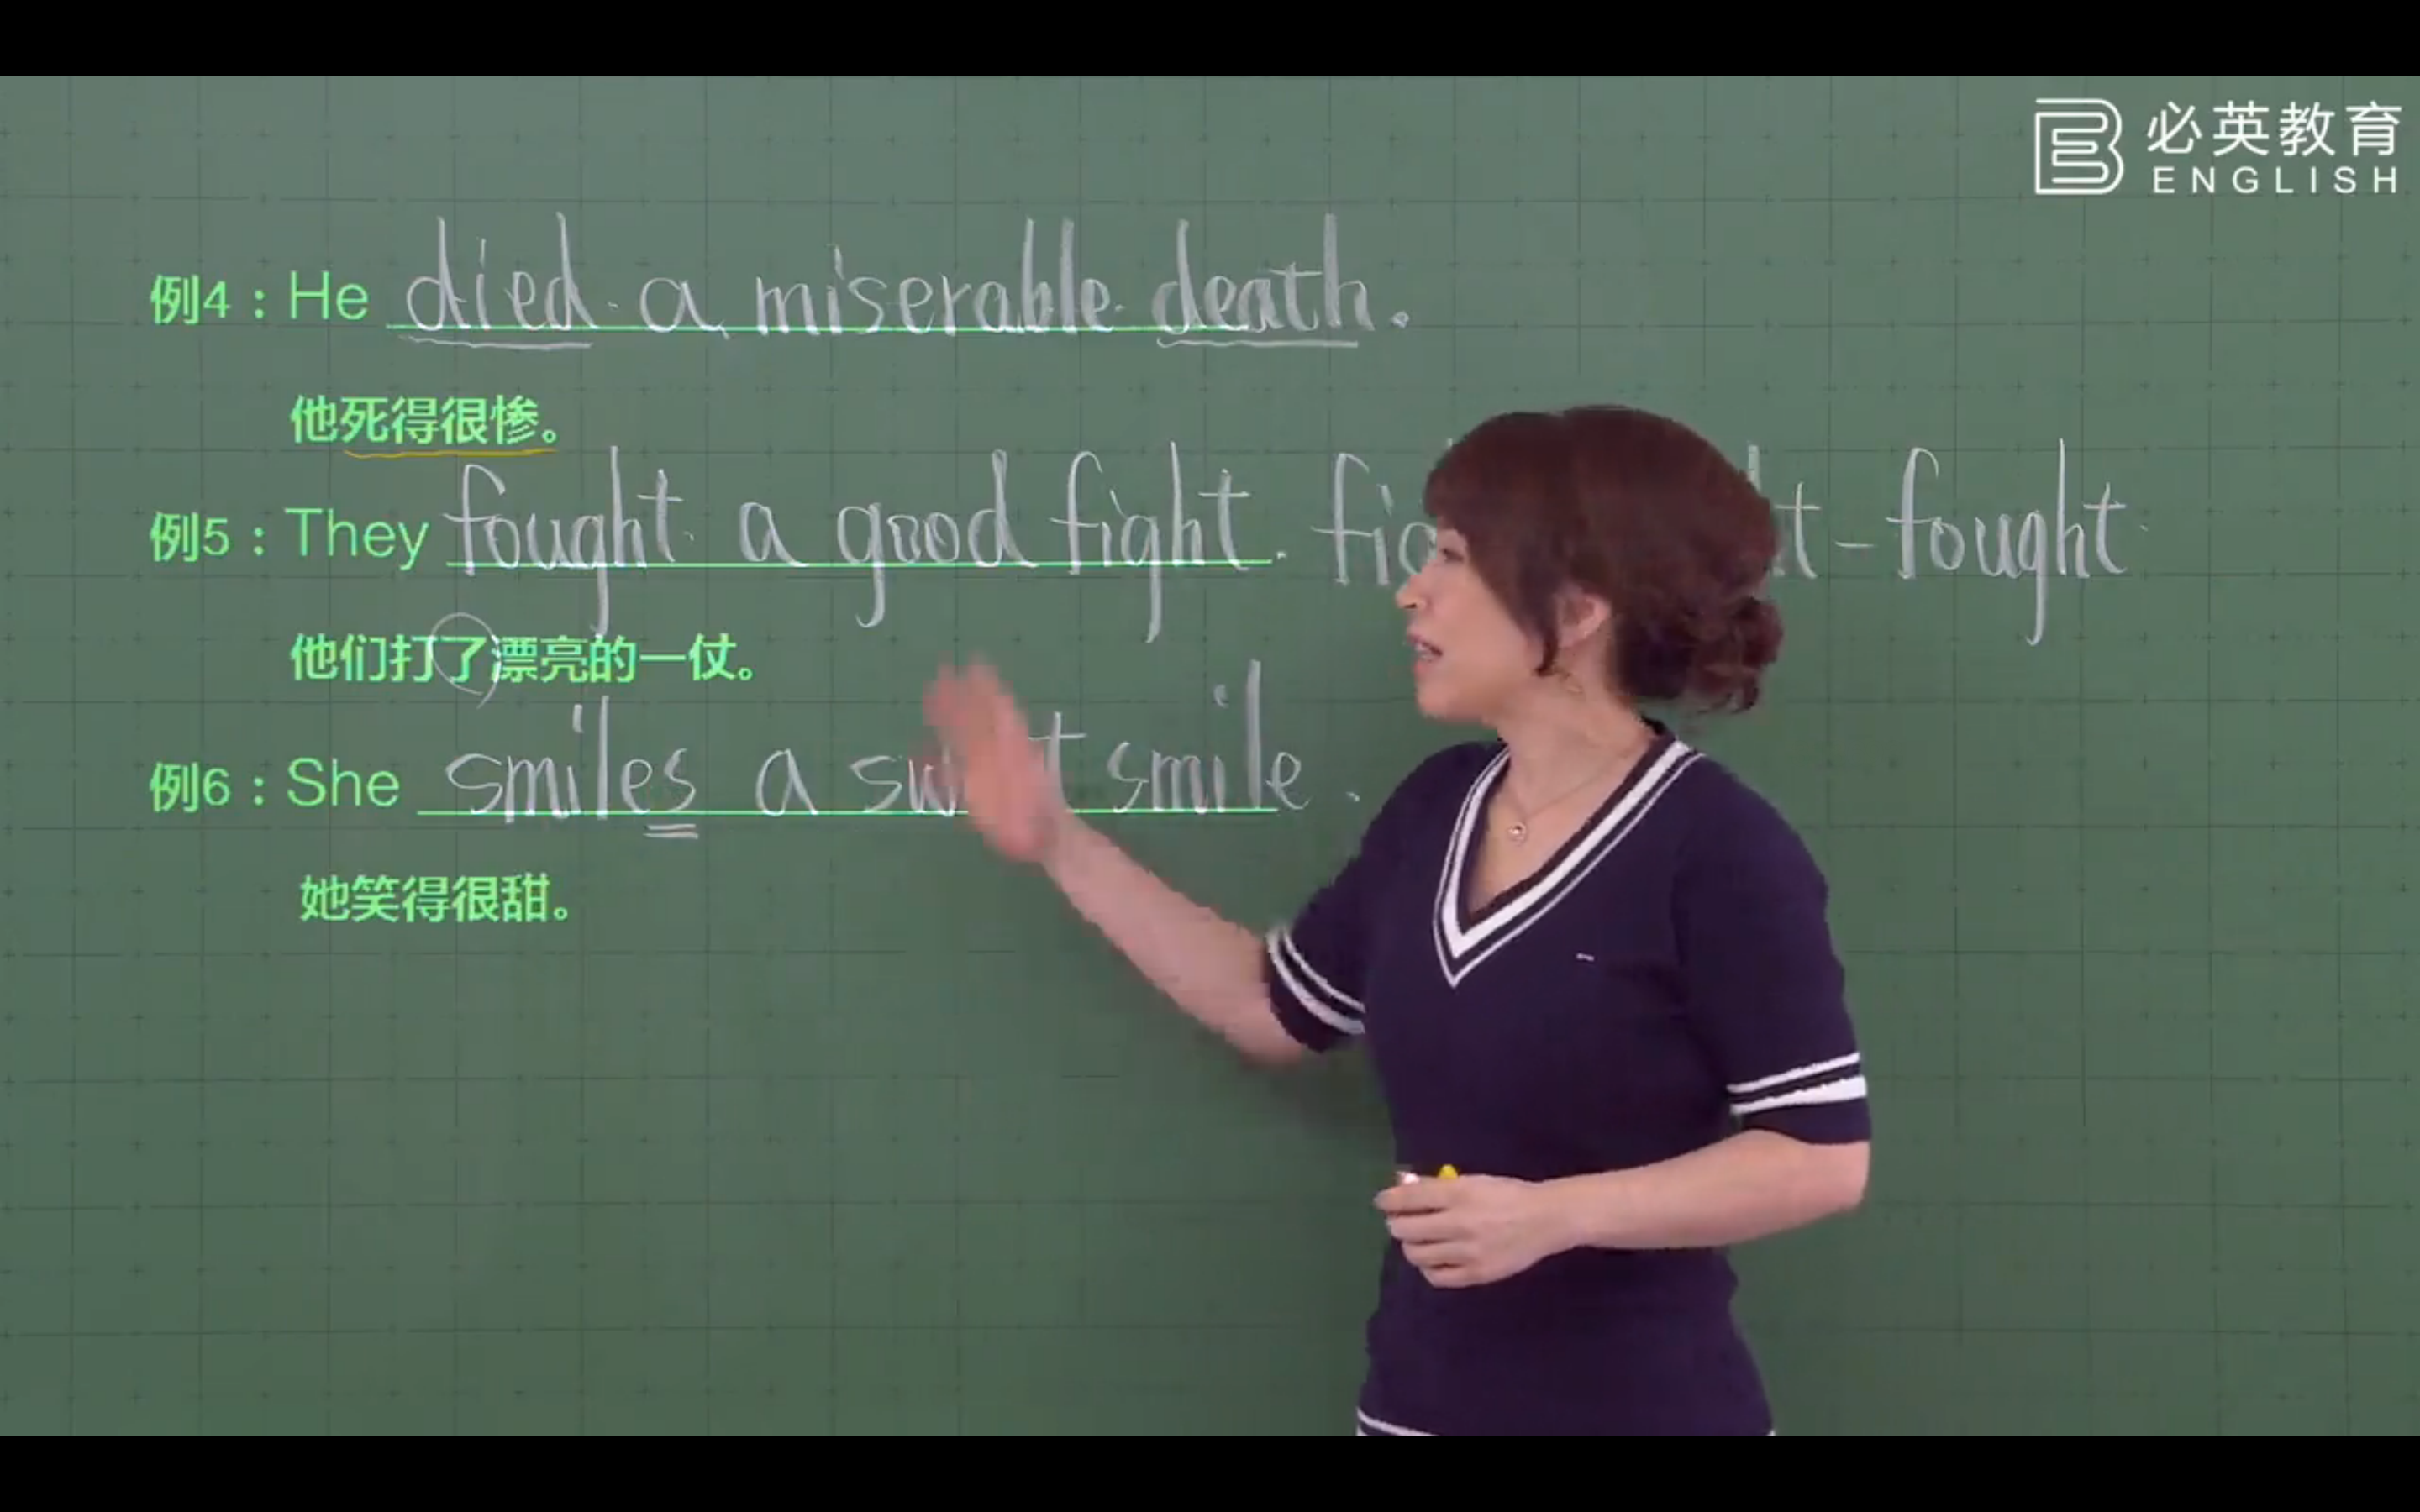 必英教育
ENGLISH
例4：He died a miserable death.
他死得很惨。
例5：They fought a good fight. fought
他们打了漂亮的一仗。
例6：She smiles a smile.
她笑得很甜。